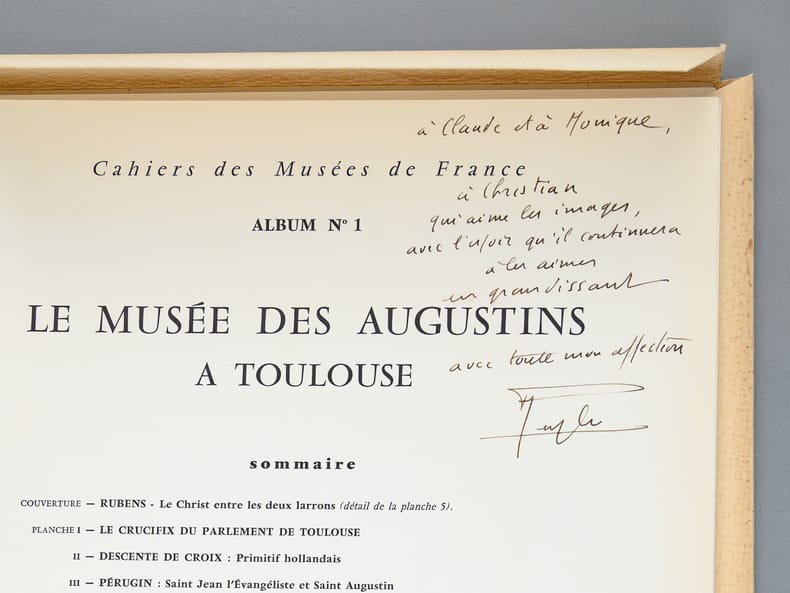 à Claude et à Monique,
Cahiers des Musées de France
à Christian
qui aime les images,
ALBUM Nº 1
avec l'espoir qu'il continuera
à les aimer
en grandissant
LE MUSÉE DES AUGUSTINS
A TOULOUSE
avec toute mon affection
sommaire
COUVERTURE — RUBENS - Le Christ entre les deux larrons (détail de la planche 5).
PLANCHE I — LE CRUCIFIX DU PARLEMENT DE TOULOUSE
II — DESCENTE DE CROIX : Primitif hollandais
III — PÉRUGIN : Saint Jean l'Évangéliste et Saint Augustin